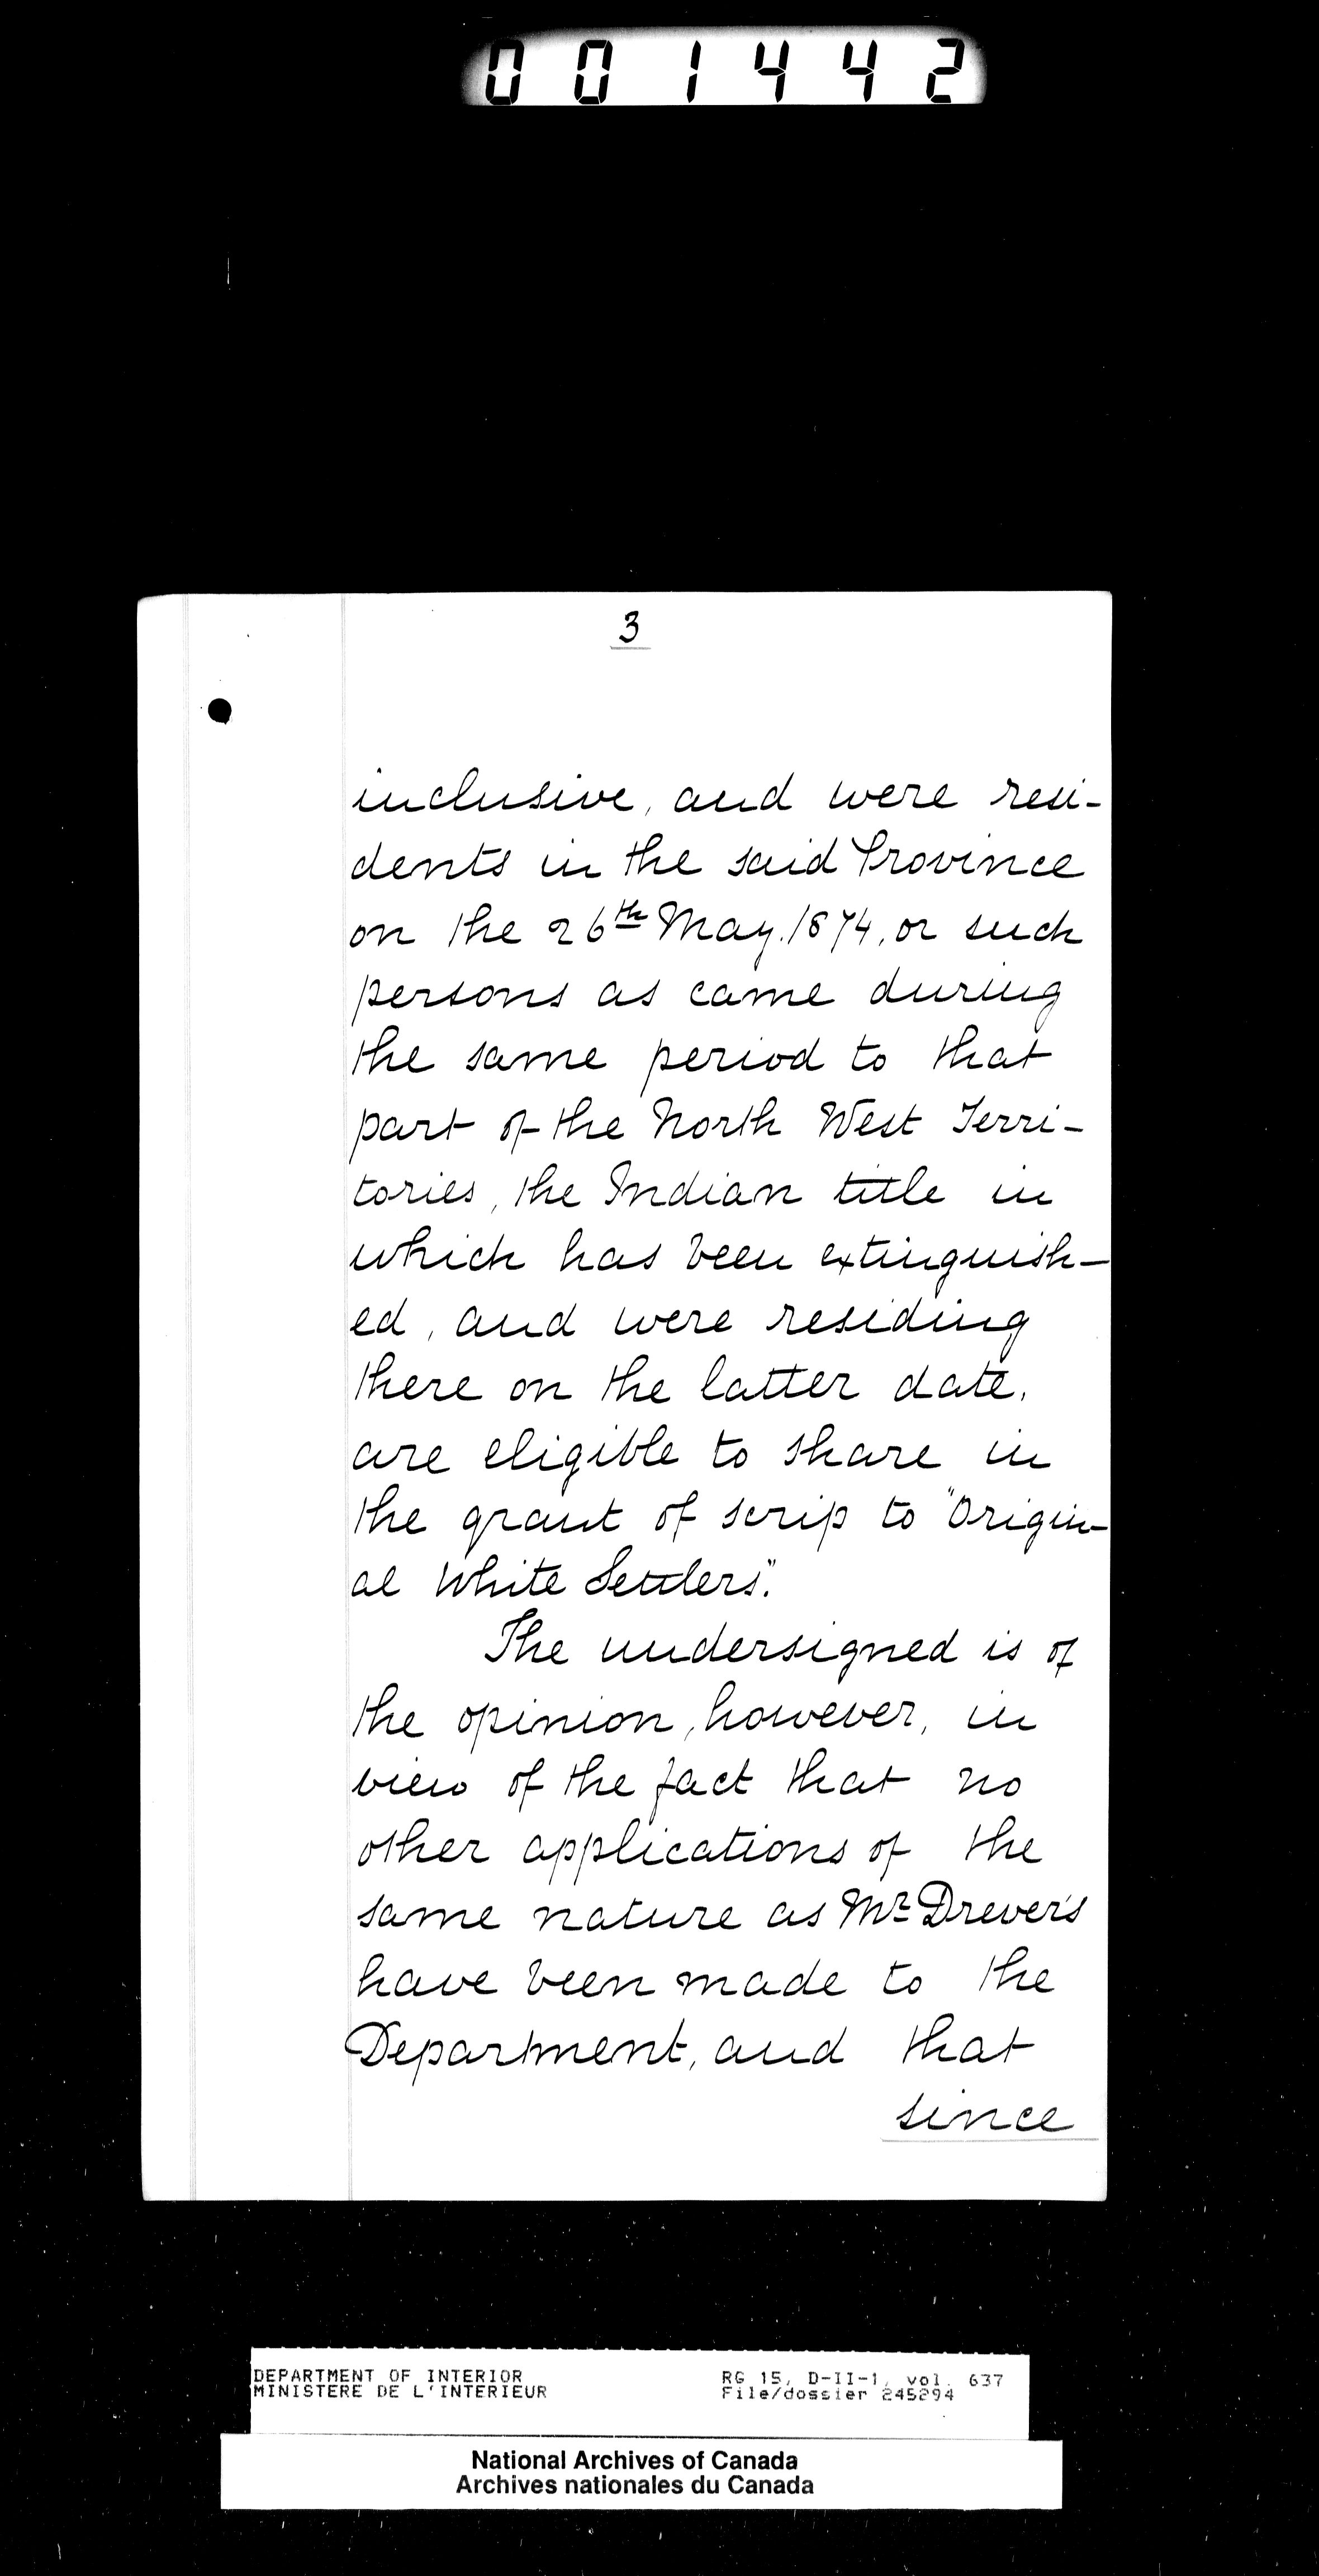 001442
3
inclusive, and were resi-
dents in the said Province
on the 26th May. 1874, or such
persons as came during
the same period to that
part of the North West Terri-
tories, the Indian title in
which has been extinguish-
ed, and were residing
there on the latter date,
are eligible to share in
the grant of scrip to "Origin-
al White Settlers".
The undersigned is of
the opinion, however, in
view of the fact that no
other applications of the
same nature as Mr Drever's
have been made to the
Department, and that
since
DEPARTMENT OF INTERIOR RG 15, D-II-1, vol. 637
MINISTERE DE L'INTERIEUR File/dossier 245294
National Archives of Canada
Archives nationales du Canada